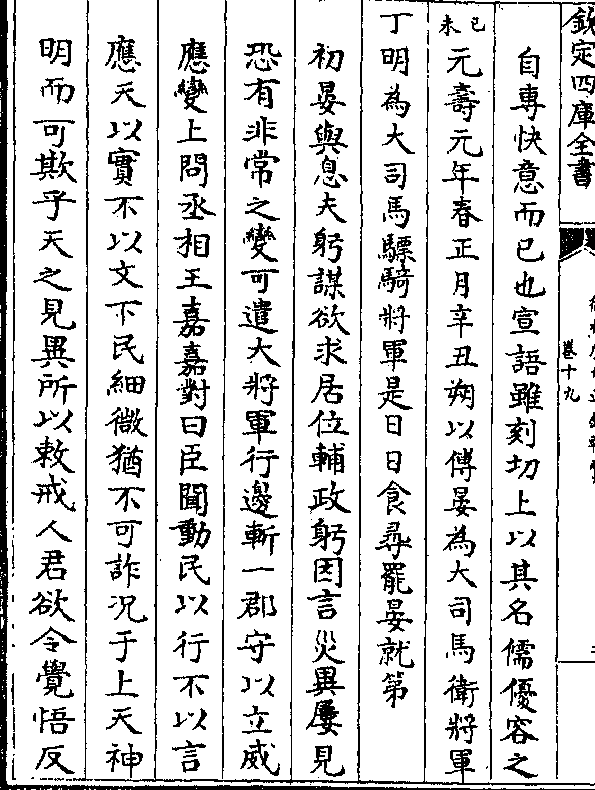 欽定四庫全書
卷十九
自專快意而已也宣語雖刻切上以其名儒優容之
己未
元壽元年春正月辛丑朔以傅晏為大司馬衛將軍
丁明為大司馬驃騎將軍是日日食尋罷晏就第
初晏與息夫躬謀欲求居位輔政躬因言災異屢見
恐有非常之變可遣大將軍行邊斬一郡守以立威
應變上問丞相王嘉嘉對曰臣聞動民以行不以言
應天以實不以文下民細微猶不可詐况于上天神
明而可欺乎天之見異所以敕戒人君欲令覺悟反